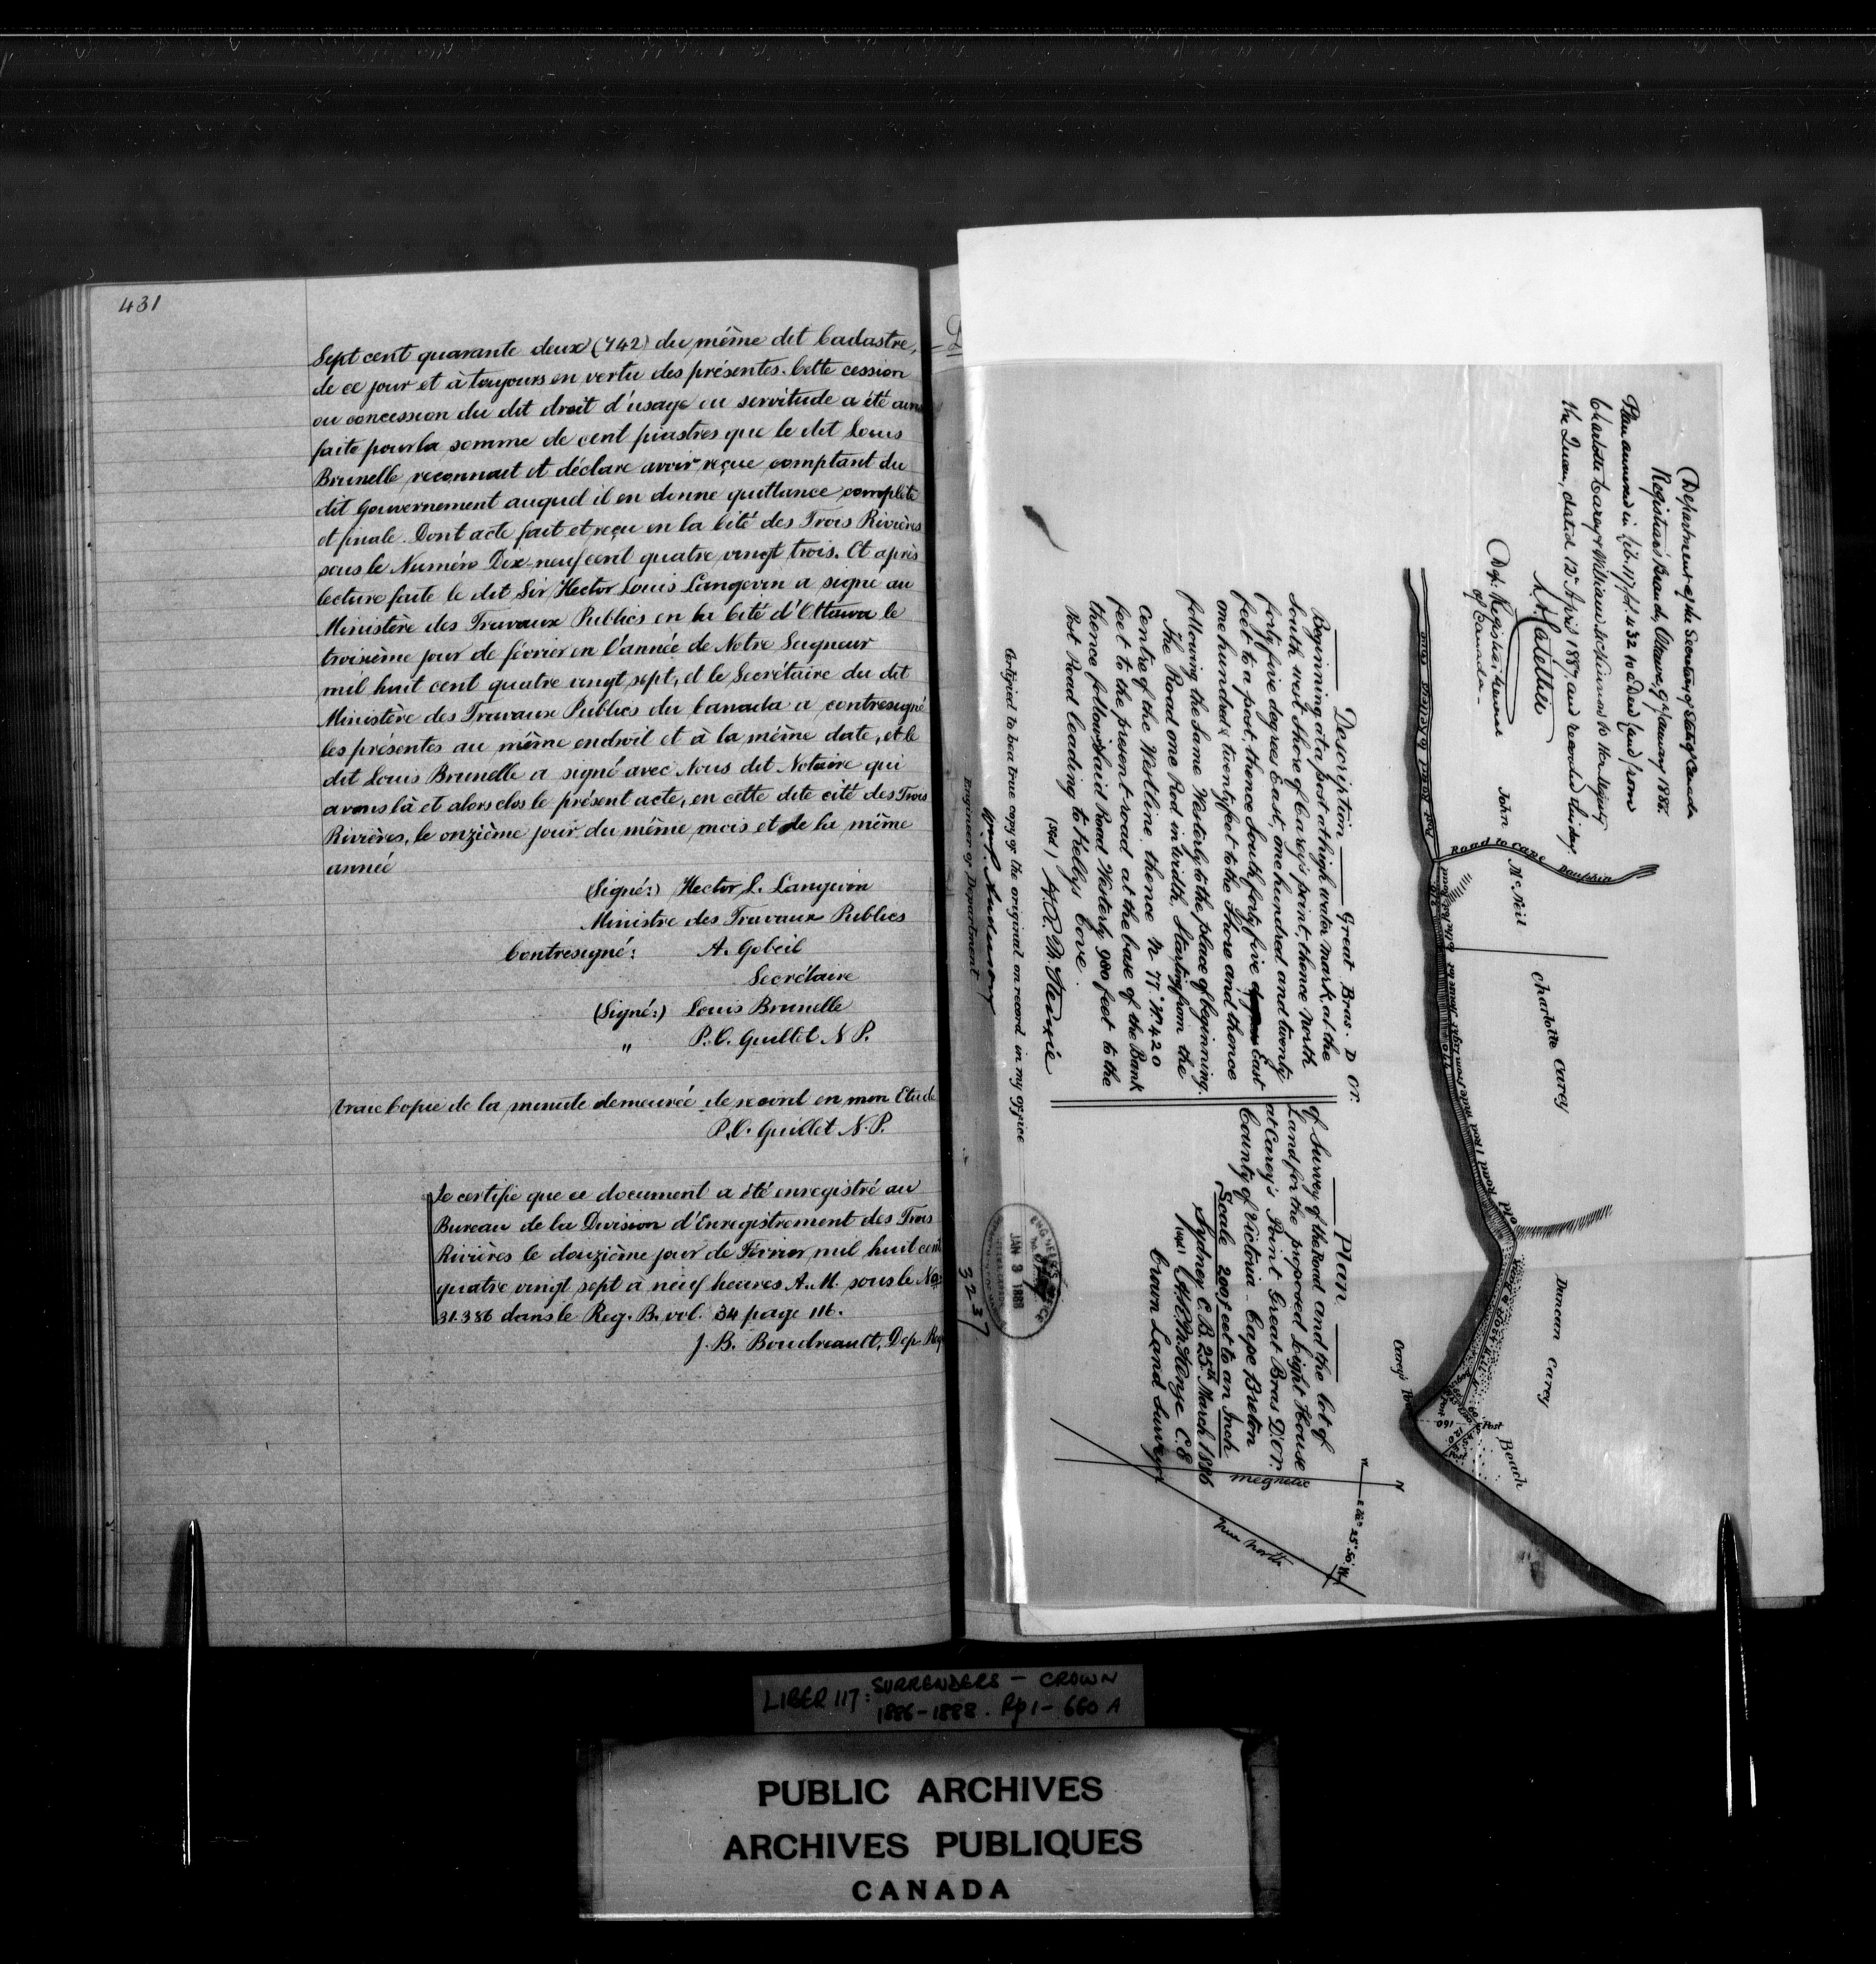 431
Sept cent quarante deux (742) du même dit Cadastre,
de ce jour et à toujours en vertu des présentes. Cette cession
ou concession du dit droit d'usage ou servitude a été ainsi
faite pour la somme de cent piastres que le dit Louis
Brunelle reconnait et déclare avoir reçue comptant du
dit Gouvernement auquel il en donne quittance complète
et finale. Dont acte fait et reçu en la Cité des Trois Rivières
sous le Numéro Dix-neuf cent quatre vingt trois. Et après
lecture faite le dit Sir Hector Louis Langevin a signé au
Ministère des Travaux Publics en la Cité d'Ottawa le
troisième jour de février en l'année de Notre Seigneur
mil huit cent quatre vingt sept, et le Secrétaire du dit
Ministère des Travaux Publics du Canada a contresigné
les présentes au même endroit et à la même date, et le
dit Louis Brunelle a signé avec Nous dit Notaire qui
avons là et alors clos le présent acte, en cette dite cité des Trois
Rivières, le onzième jour du même mois et de la même
année
(Signé:) Hector L. Langevin
Ministre des Travaux Publics
Contresigné: A. Gobeil
Secrétaire
(Signé:) Louis Brunelle
" P.C. Guillet N.P.
Vraie Copie de la minute demeurée de record en mon Etude
P.C. Guillet N.P.
Je certifie que ce document a été enregistré au
Bureau de la Division d'Enregistrement des Trois
Rivières le douzième jour de Février mil huit cent
quatre vingt sept à neuf heures A.M. sous le No
31.386 dans le Reg. B. vol. 34 page 116.
J. B. Boudreault, Dep Reg
Department of the Secretary of State of Canada
Registrar's Branch, Ottawa, 9th January 1888.
Plan annexed in Lib. 117, fol. 432 to a Deed (and) from
Charlotte Carey & William to Her Majesty
the Queen, dated 12th April 1887, and recorded this day.
Dep. Registrar General
of Canada
Road to Cape Dauphin
John McNeil
Charlotte Carey
Duncan Carey
Beach
Post
160
120
Carey's Point
Old Road 1 Rod wide from Light House lot to the
Description Great Bras. D or.
Beginning at a post at high water mark, at the
South west Shore of Carey's point, thence North
forty five degrees East, one hundred and twenty
feet to a post, thence South forty five degrees East
one hundred & twenty feet to the Shore and thence
following the same Westerly to the place of beginning.
The Road one Rod in width, Starting from the
Centre of the West line, thence N 77° W. 420
feet to the present road at the base of the Bank
thence following said Road Westerly 980 feet to the
Post Road leading to Kellys Cove.
(Sgd)
Certified to be a true copy of the original on record in my Office
Engineer of Department
3237
JAN 9 1888
Plan
of Survey of the Road and the lot of
Land for the proposed Light House
at Carey's Point Great Bras D'Or.
County of Victoria - Cape Breton
Scale 200 feet to an Inch
Sydney C.B. 25th March 1886
Crown Land Surveyor
Magnetic
N
True North
LIBER 117: SURRENDERS - CROWN
1886-1888. Pp 1- 660 A
PUBLIC ARCHIVES
ARCHIVES PUBLIQUES
CANADA